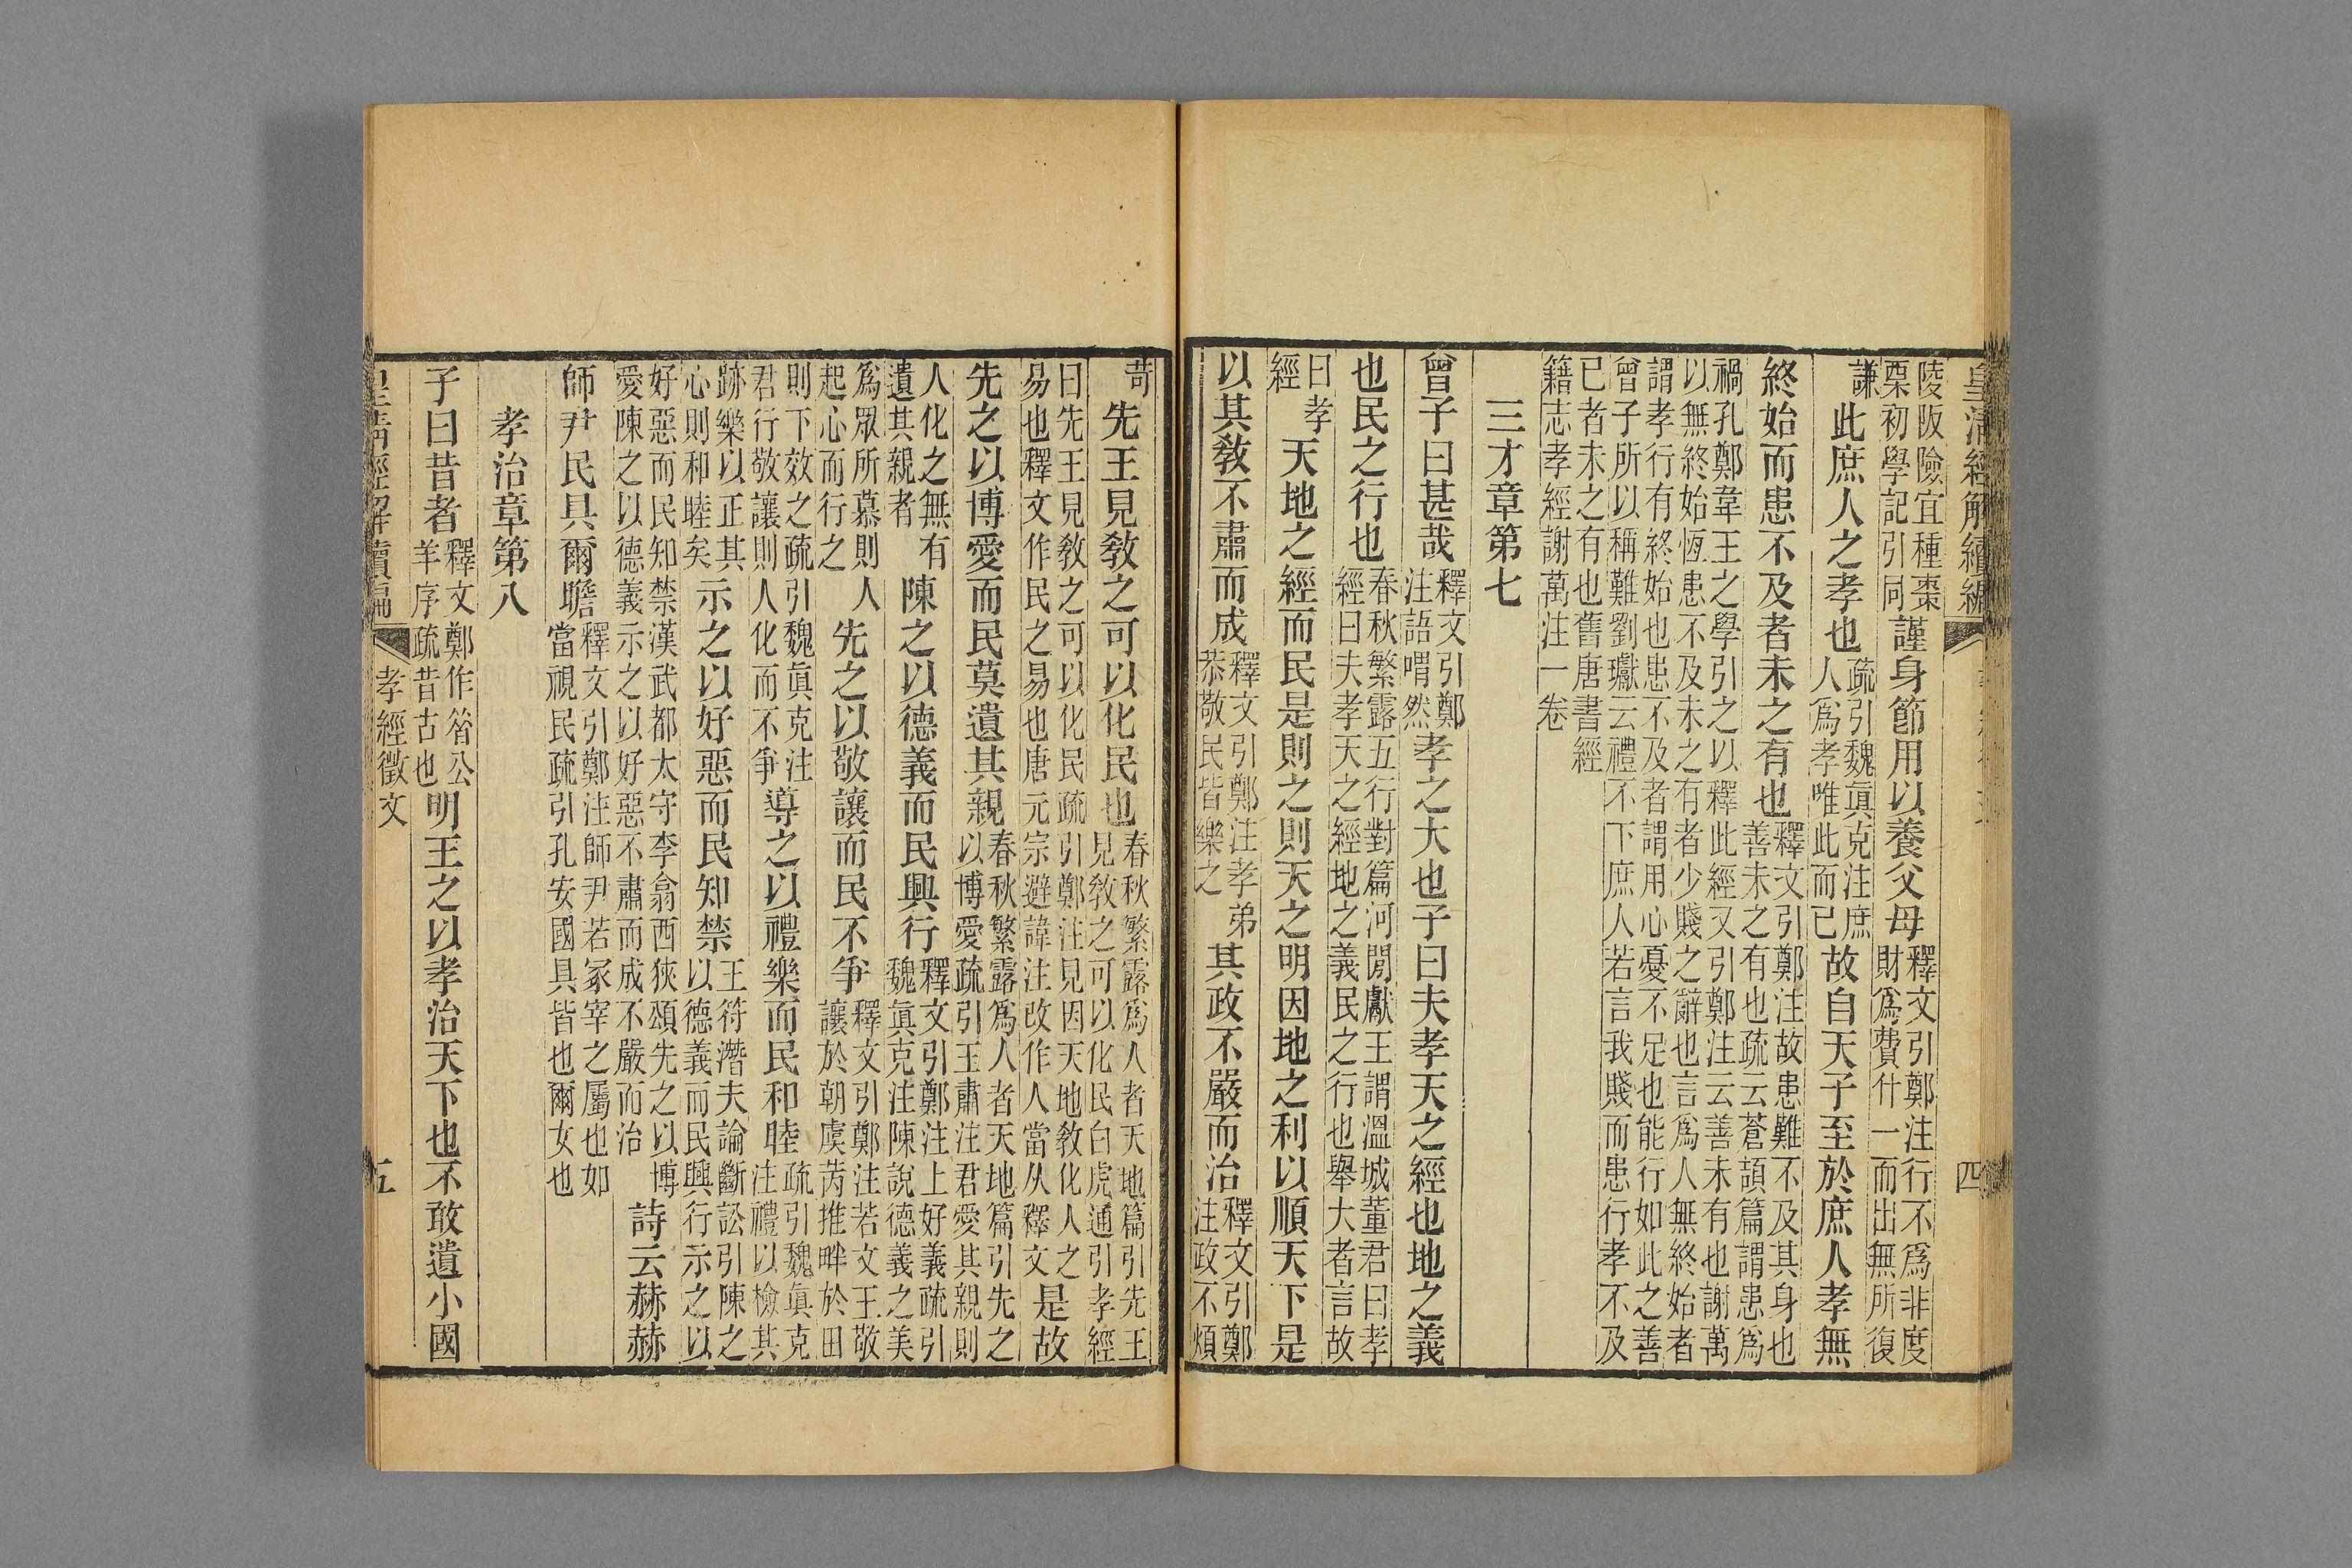 皇清經解續編
四
陵阪險宜種棗栗初學記引同謹身節用以養父母釋文引鄭注行不爲非度財爲費什一而出無所復
謙此庶人之孝也疏引魏眞克注庶人爲孝唯此而已故自天子至於庶人孝無
終始而患不及者未之有也釋文引鄭注故患難不及其身也善未之有也疏云蒼頡篇謂患爲
禍孔鄭韋王之學引之以釋此經又引鄭注云善未有也謝萬以無終始恆患不及未之有者少賤之辭也言爲人無終始者
謂孝行有終始也患不及者謂用心憂不足也能行如此之善曾子所以稱難劉瓛云禮不下庶人若言我賤而患行孝不及
已者未之有也舊唐書經籍志孝經謝萬注一卷
三才章第七
曾子曰甚哉釋文引鄭注語喟然孝之大也子曰夫孝天之經也地之義
也民之行也春秋繁露五行對篇河閒獻王謂溫城董君曰孝經曰夫孝天之經地之義民之行也舉大者言故
曰孝經天地之經而民是則之則天之明因地之利以順天下是
以其敎不肅而成釋文引鄭注孝弟恭敬民皆樂之其政不嚴而治釋文引鄭注政不煩
苛先王見敎之可以化民也春秋繁露爲人者天地篇引先王見敎之可以化民白虎通引孝經
曰先王見敎之可以化民疏引鄭注見因天地敎化人之易也釋文作民之易也唐元宗避諱注改作人當从釋文是故
先之以博愛而民莫遺其親春秋繁露爲人者天地篇引先之以博愛疏引王肅注君愛其親則
人化之無有遺其親者陳之以德義而民興行釋文引鄭注上好義疏引魏眞克注陳說德義之美
爲眾所慕則人起心而行之先之以敬讓而民不爭釋文引鄭注若文王敬讓於朝虞芮推畔於田
則下效之疏引魏眞克注君行敬讓則人化而不爭導之以禮樂而民和睦疏引魏眞克注禮以檢其
跡樂以正其心則和睦矣示之以好惡而民知禁王符潛夫論斷訟引陳之以德義而民興行示之以
好惡而民知禁漢武都太守李翕西狹頌先之以博愛陳之以德義示之以好惡不肅而成不嚴而治詩云赫赫
師尹民具爾瞻釋文引鄭注師尹若冢宰之屬也如當視民疏引孔安國具皆也爾女也
孝治章第八
子曰昔者釋文鄭作公羊序疏昔古也明王之以孝治天下也不敢遺小國
皇清經解續編 孝經徵文 五